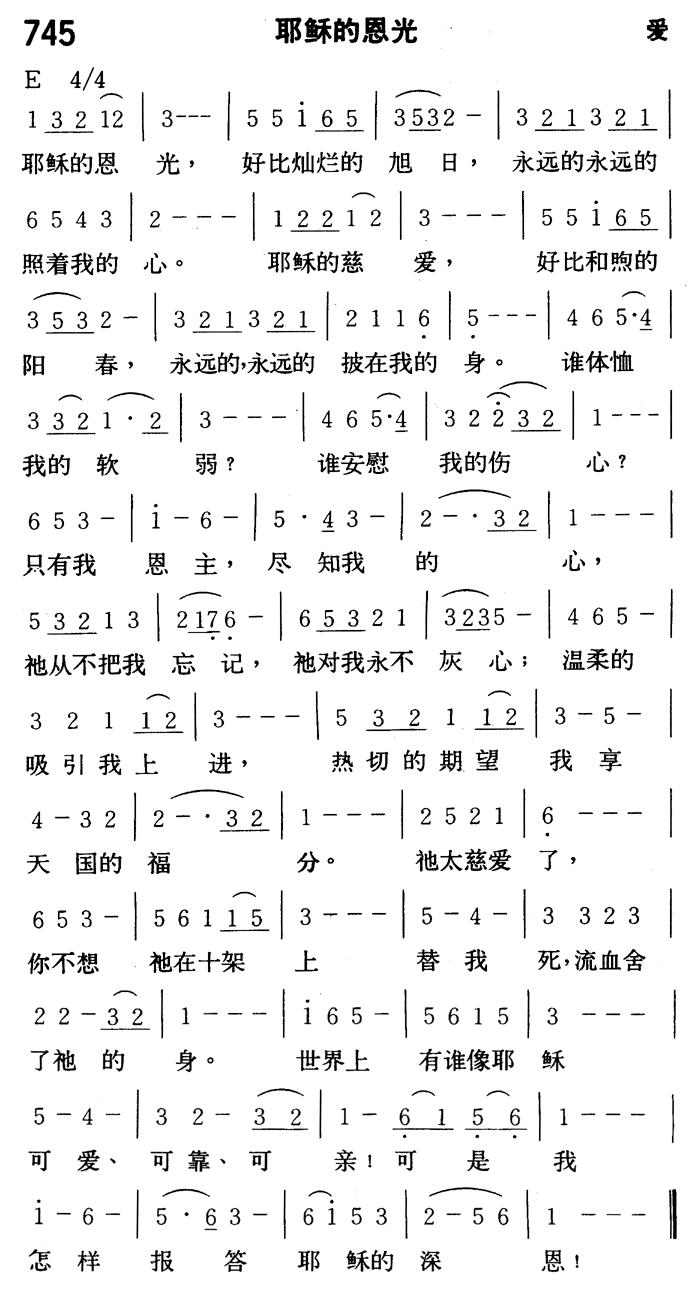 745 耶稣的恩光 爱
E 4/4
1 3 2 1 2 | 3 - - - | 5 5 i 6 5 | 3 5 3 2 - | 3 2 1 3 2 1 |
耶稣的恩 光， 好比灿烂的 旭 日， 永远的永远的
6 5 4 3 | 2 - - - | 1 2 2 1 2 | 3 - - - | 5 5 i 6 5 |
照着我的 心。 耶稣的慈 爱， 好比和煦的
3 5 3 2 - | 3 2 1 3 2 1 | 2 1 1 6 | 5 - - - | 4 6 5 · 4 |
阳 春， 永远的，永远的 披在我的 身。 谁体恤
3 3 2 1 · 2 | 3 - - - | 4 6 5 · 4 | 3 2 2 3 2 | 1 - - - |
我的 软 弱？ 谁安慰 我的伤 心？
6 5 3 - | i - 6 - | 5 · 4 3 - | 2 - · 3 2 | 1 - - - |
只有我 恩 主， 尽 知我 的 心，
5 3 2 1 3 | 2 1 7 6 - | 6 5 3 2 1 | 3 2 3 5 - | 4 6 5 - |
祂从不把我 忘 记， 祂对我永不 灰 心； 温柔的
3 2 1 1 2 | 3 - - - | 5 3 2 1 1 2 | 3 - 5 - |
吸引我上 进， 热切的期望 我 享
4 - 3 2 | 2 - · 3 2 | 1 - - - | 2 5 2 1 | 6 - - - |
天 国的 福 分。 祂太慈爱 了，
6 5 3 - | 5 6 1 1 5 | 3 - - - | 5 - 4 - | 3 3 2 3 |
你不想 祂在十架 上 替 我 死，流血舍
2 2 - 3 2 | 1 - - - | i 6 5 - | 5 6 1 5 | 3 - - - |
了祂 的 身。 世界上 有谁像耶 稣
5 - 4 - | 3 2 - 3 2 | 1 - 6 1 5 6 | 1 - - - |
可 爱、 可 靠、可 亲！可 是 我
i - 6 - | 5 · 6 3 - | 6 i 5 3 | 2 - 5 6 | 1 - - - ‖
怎 样 报 答 耶 稣的 深 恩！